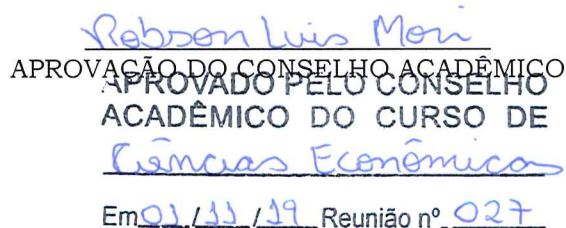 Robson Luis Mori
APROVAÇÃO DO CONSELHO ACADÊMICO
APROVADO PELO CONSELHO
ACADÊMICO DO CURSO DE
Ciências Econômicas
Em 01 / 11 / 19 Reunião nº 027